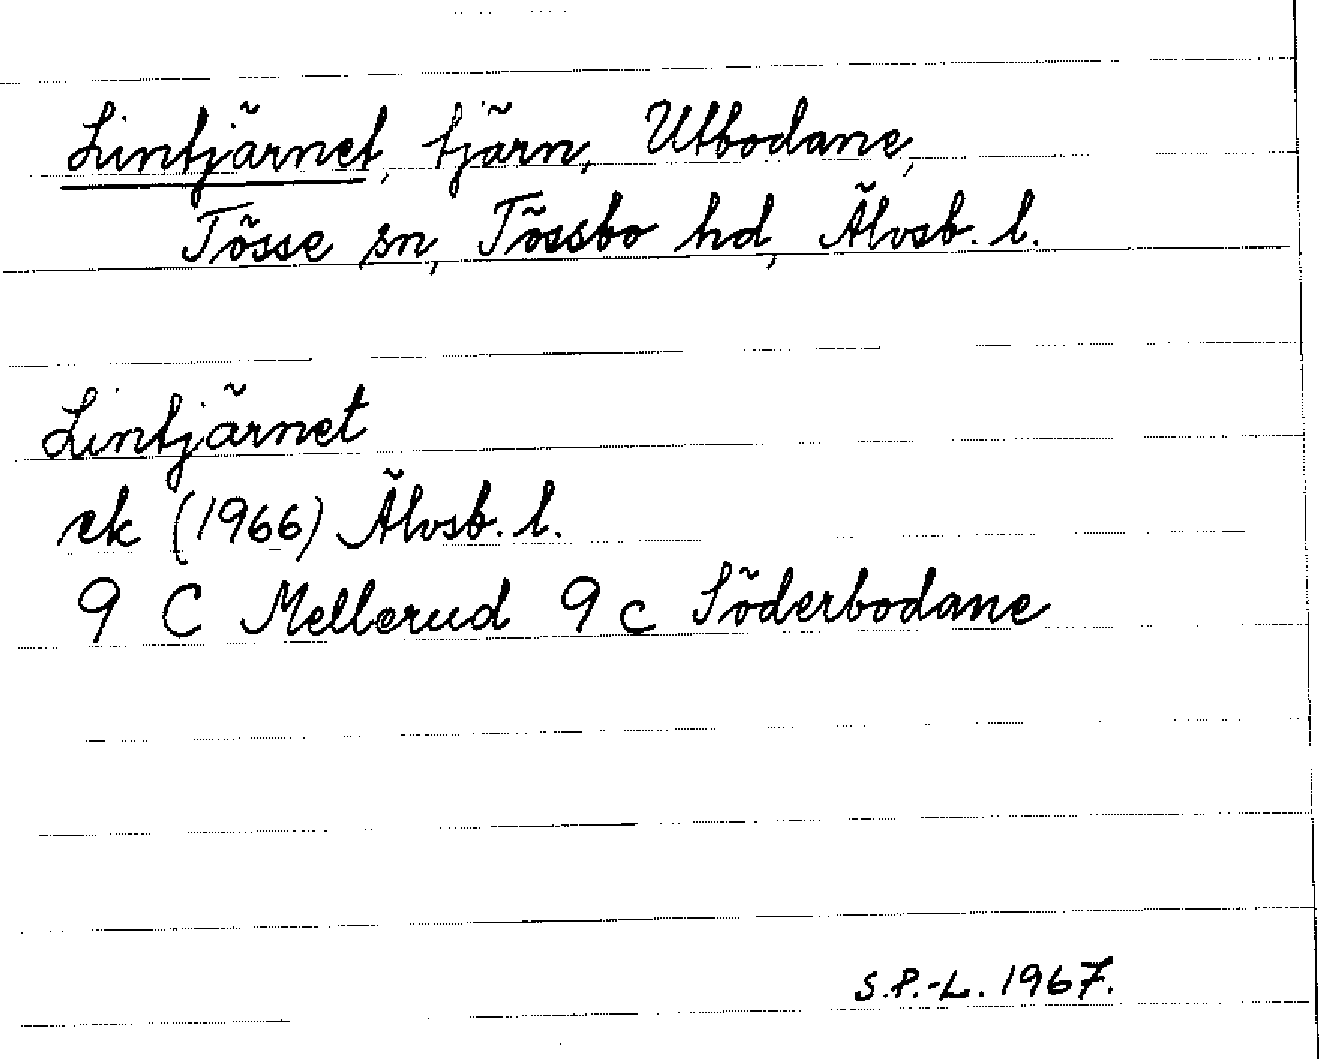 Lintjärnet, tjärn, Utbodane,
Tösse sn, Tössbo hd, Älvsb. l.
Lintjärnet
ek (1966) Älvsb. l.
9 C Mellerud 9 c Söderbodane
S.P.-L. 1967.